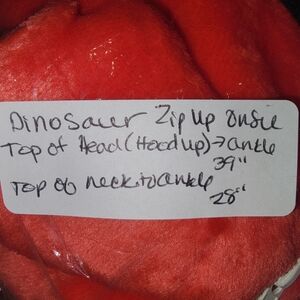 Dinosaur Zip Up Onsie
Top of Head (Hood up) → ankle
39"
Top of neck to ankle
28"